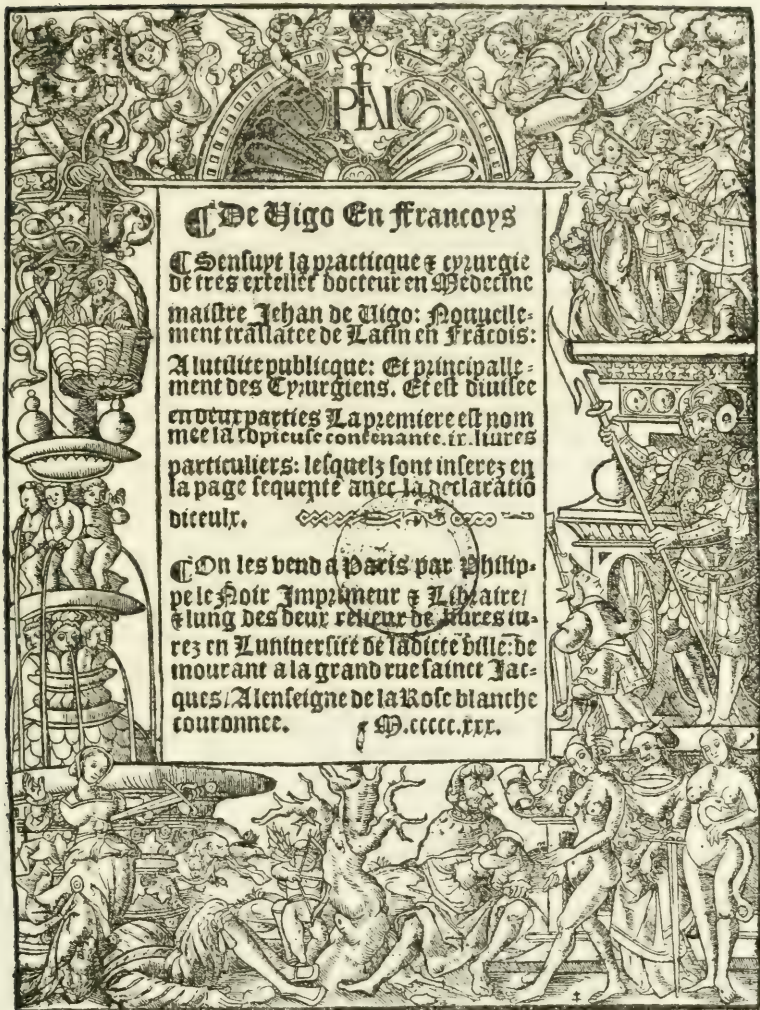 ¶De Uigo En Francoys
¶Sensuyt la practicque ⁊ cyrurgie
de tres excellẽt docteur en Medecine
maistre Jehan de Uigo: Nouuelle-
ment trãslatee de Latin en Frãcois:
A lutilite publicque: Et principalle-
ment des Cyrurgiens. Et est diuisee
en deux parties La premiere est nom
mee la copieuse contenante.ix.liures
particuliers: lesquelz sont inserez en
la page sequente auec la declaratiõ
diceulx.
¶On les vend a Paris par Philip-
pe le Noir Imprimeur ⁊ Libraire/
⁊ lung des deux relieur de liures iu-
rez en Luniuersite de ladicte ville: de
mourant a la grand rue sainct Jac-
ques/A lenseigne de la Rose blanche
couronnee. M.ccccc.xxx.